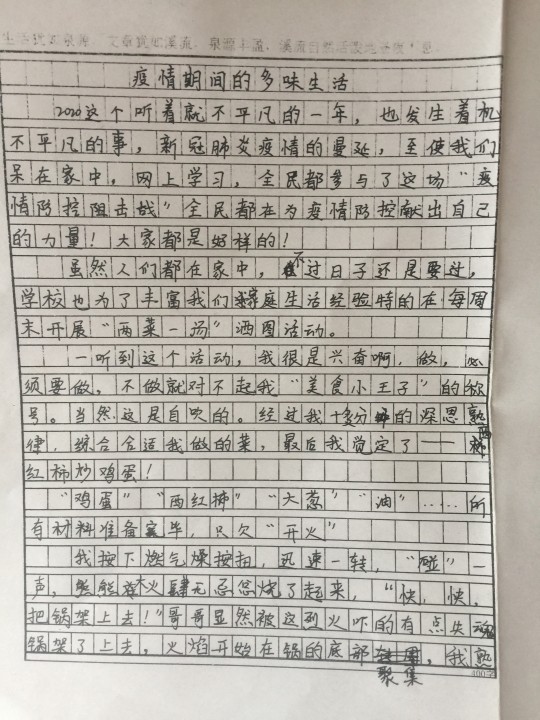 疫情期间的多味生活
2020这个听着就不平凡的一年，也发生着机
不平凡的事，新冠肺炎疫情的曼延，至使我们
呆在家中，网上学习，全民都参与了这场“疫
情防控阻击战”全民都在为疫情防控献出自己
的力量！大家都是好样的！
虽然人们都在家中，不过日子还是要过，
学校也为了丰富我们家庭生活经验特的在每周
末开展“两菜一汤”洒图活动。
一听到这个活动，我很是兴奋啊，做，必
须要做，不做就对不起我“美食小王子”的称
号。当然这是自吹的。经过我十多分钟的深思熟
律，综合合适我做的菜，最后我觉定了——西柿
红柿炒鸡蛋！
“鸡蛋”“西红柿”“大葱”“油”……所
有材料准备完毕，只欠“开火”
我按下燃气燥按扭，迅速一转，“碰”一
声，熊熊大火肆无忌怠烧了起来，“快，快，
把锅架上去！”哥哥显然被这烈火吓的有点失魂
锅架了上去，火焰开始在锅的底部聚集，我熟